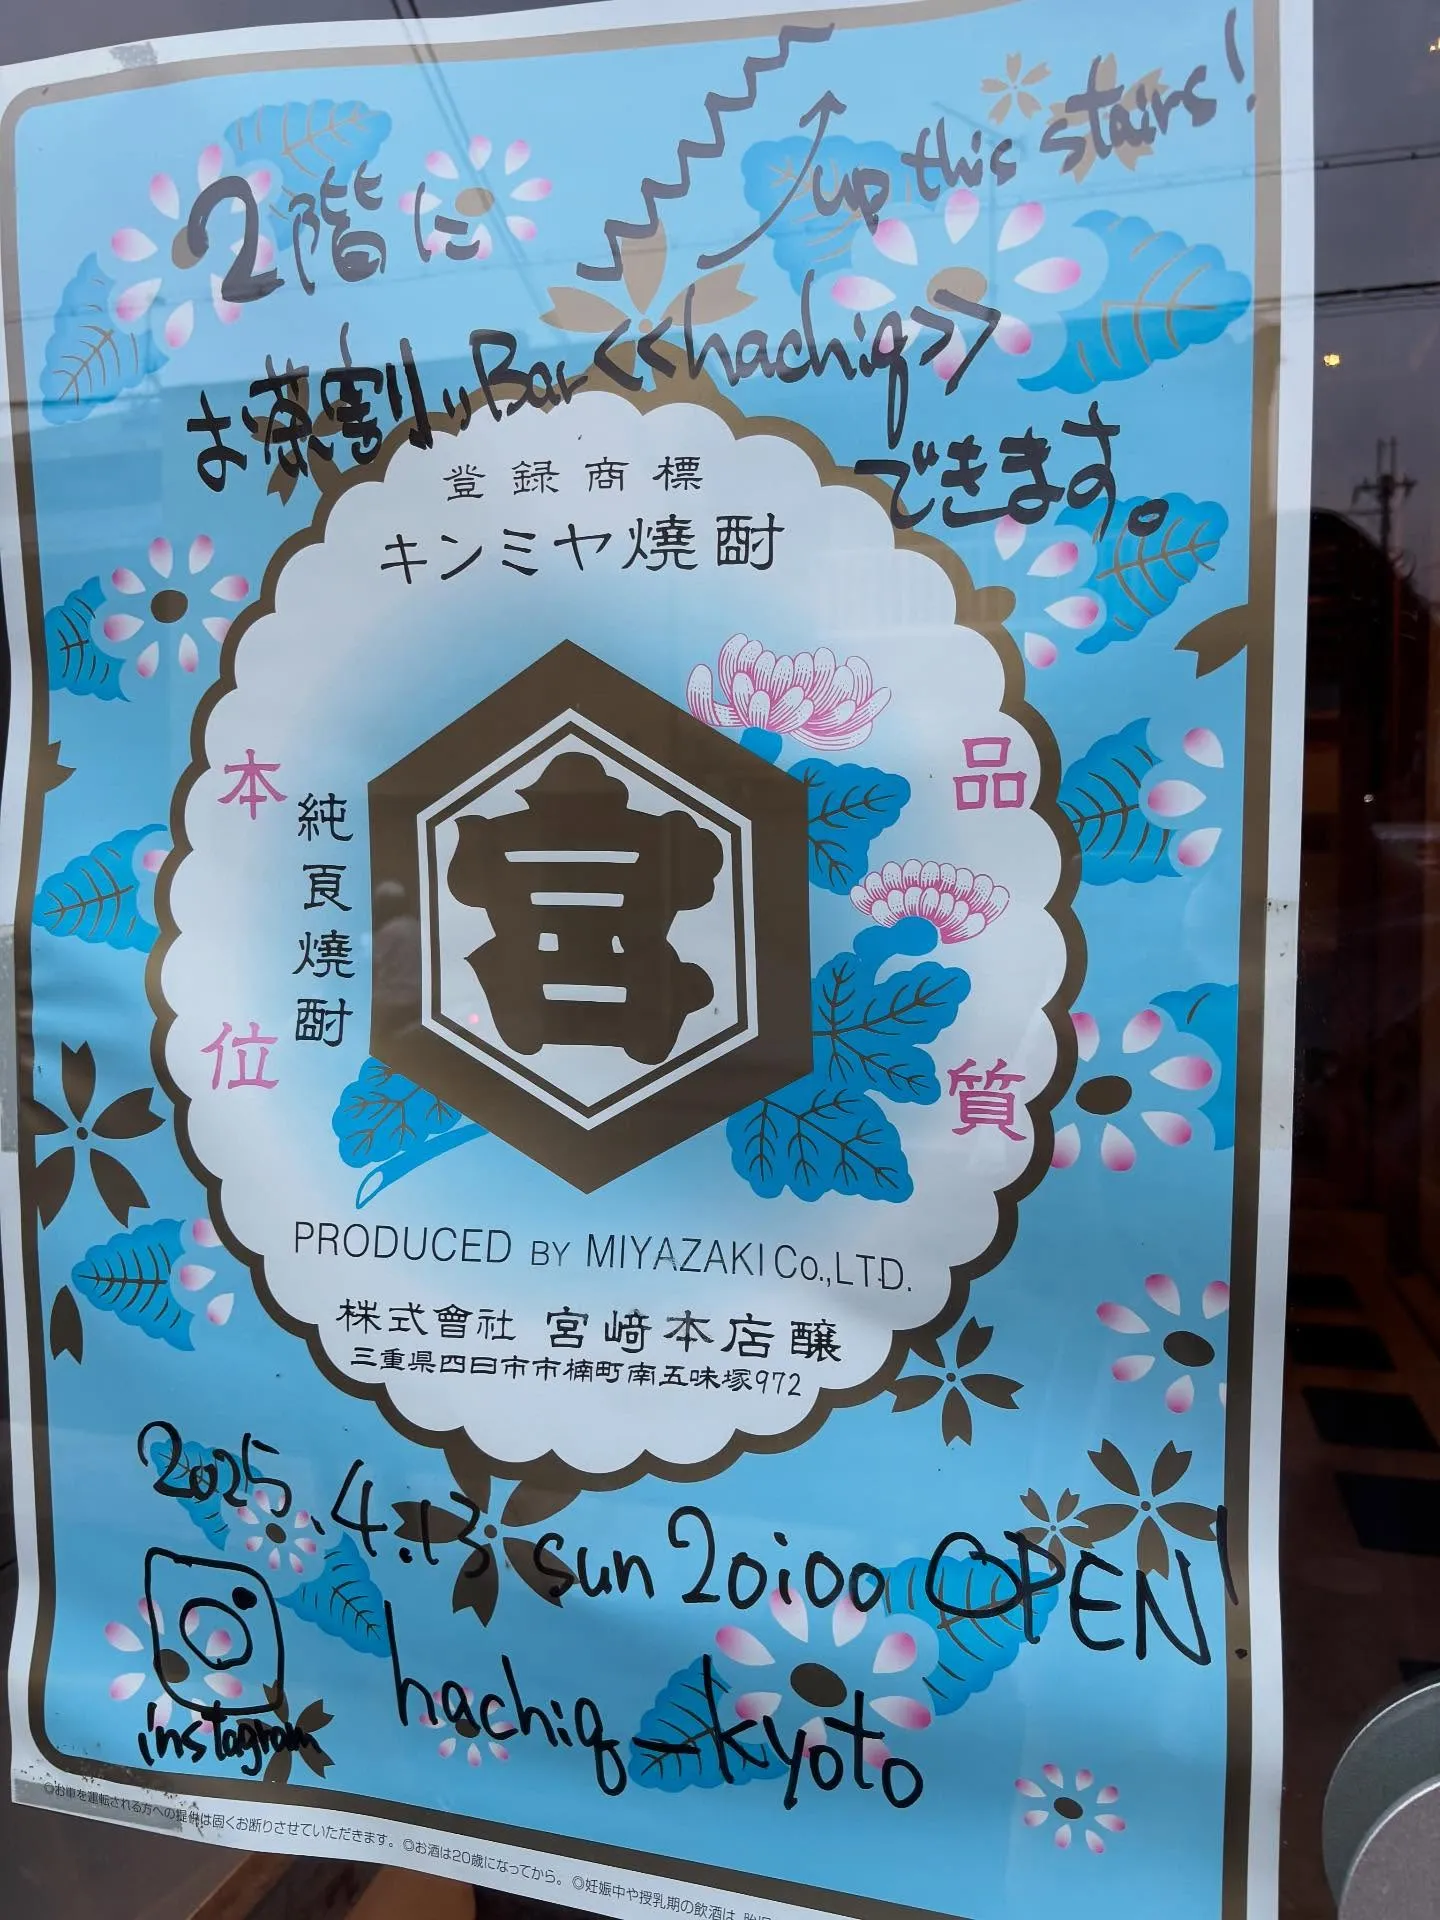 up this stairs!
2階に
お茶割りBar<<hachiq>>
できます。
登録商標
キンミヤ焼酎
本位
純良焼酎
宮
品質
PRODUCED BY MIYAZAKI Co.,LTD.
株式會社 宮﨑本店醸
三重県四日市市楠町南五味塚972
2025.4.13 sun 20:00 OPEN!
instagram
hachiq_kyoto
◎お車を運転される方への提供は固くお断りさせていただきます。◎お酒は20歳になってから。◎妊娠中や授乳期の飲酒は、